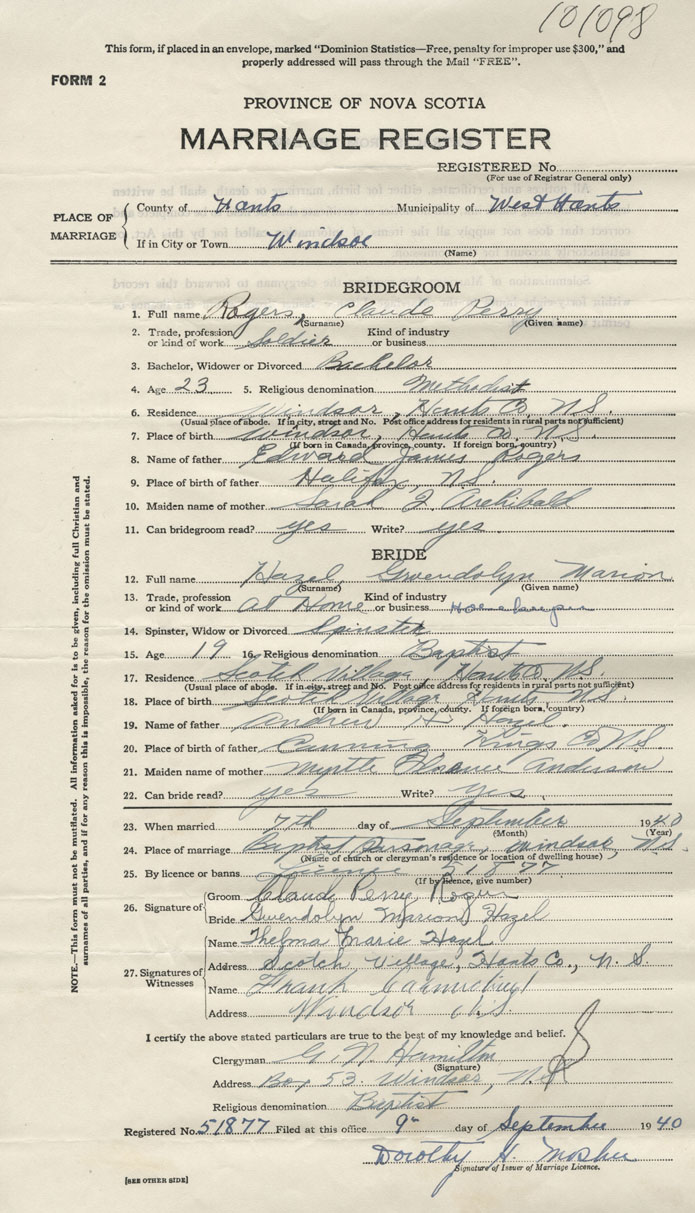 101098
This form, if placed in an envelope, marked "Dominion Statistics—Free, penalty for improper use $300," and
properly addressed will pass through the Mail "FREE".
FORM 2
PROVINCE OF NOVA SCOTIA
MARRIAGE REGISTER
REGISTERED No.
(For use of Registrar General only)
PLACE OF MARRIAGE
County of Hants Municipality of West Hants
If in City or Town Windsor
(Name)
BRIDEGROOM
1. Full name Rogers, Claude Perry
(Surname) (Given name)
2. Trade, profession or kind of work Soldier Kind of industry or business
3. Bachelor, Widower or Divorced Bachelor
4. Age 23 5. Religious denomination Methodist
6. Residence Windsor, Hants Co, N.S.
(Usual place of abode. If in city, street and No. Post office address for residents in rural parts not sufficient)
7. Place of birth Windsor, Hants Co. N.S.
(If born in Canada, province, county. If foreign born, country)
8. Name of father Edward James Rogers
9. Place of birth of father Halifax, N.S.
10. Maiden name of mother Sarah J. Archibald
11. Can bridegroom read? yes Write? yes
BRIDE
12. Full name Hazel, Gwendolyn Marion
(Surname) (Given name)
13. Trade, profession or kind of work At Home Kind of industry or business Housekeeper
14. Spinster, Widow or Divorced Spinster
15. Age 19 16. Religious denomination Baptist
17. Residence Scotch Village, Hants Co, N.S.
(Usual place of abode. If in city, street and No. Post office address for residents in rural parts not sufficient)
18. Place of birth Scotch Village Hants N.S.
(If born in Canada, province, county. If foreign born, country)
19. Name of father Andrew H. Hazel
20. Place of birth of father Canning Kings Co N.S.
21. Maiden name of mother Myrtle Anderson
22. Can bride read? yes Write? yes
23. When married 7th day of September 1940
(Month) (Year)
24. Place of marriage Baptist Parsonage, Windsor, N.S.
(Name of church or clergyman's residence or location of dwelling house)
25. By licence or banns Licence 51877
(If by licence, give number)
26. Signature of
Groom Claude Perry Rogers
Bride Gwendolyn Marion Hazel
27. Signatures of Witnesses
Name Thelma Marie Hazel
Address Scotch Village, Hants Co., N.S.
Name Frank
Address Windsor N.S.
I certify the above stated particulars are true to the best of my knowledge and belief.
Clergyman G. N. Hamilton
(Signature)
Address Box 53 Windsor, N.S.
Religious denomination Baptist
Registered No. 51877 Filed at this office 9th day of September 1940
Dorothy H. Mosher
Signature of Issuer of Marriage Licence.
[SEE OTHER SIDE]
NOTE.—This form must not be mutilated. All information asked for is to be given, including full Christian and
surnames of all parties, and if for any reason this is impossible, the reason for the omission must be stated.